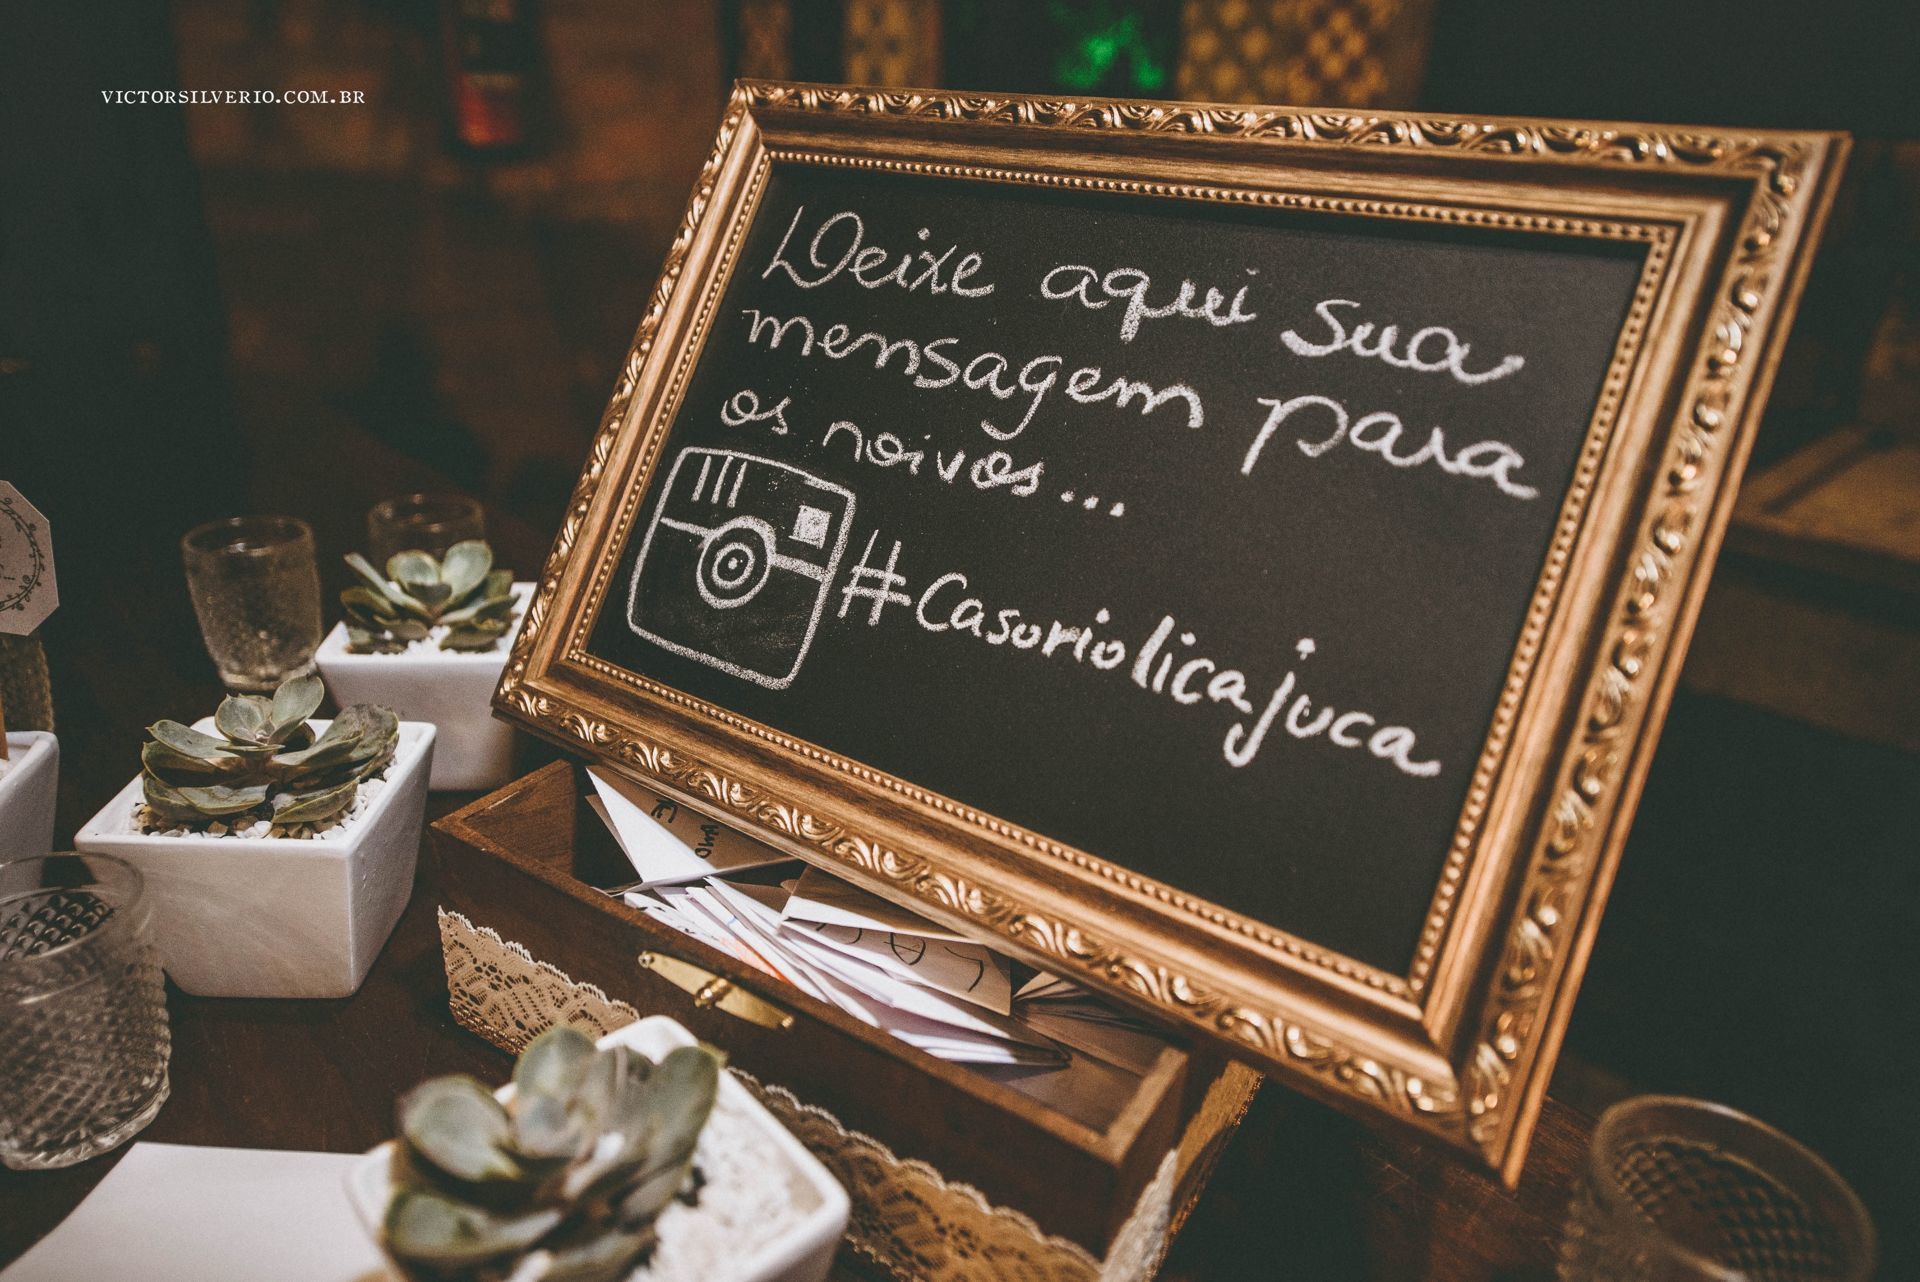 VICTORSILVERIO.COM.BR
Deixe aqui sua
mensagem para
os noivos...
#Casoriolicajuca